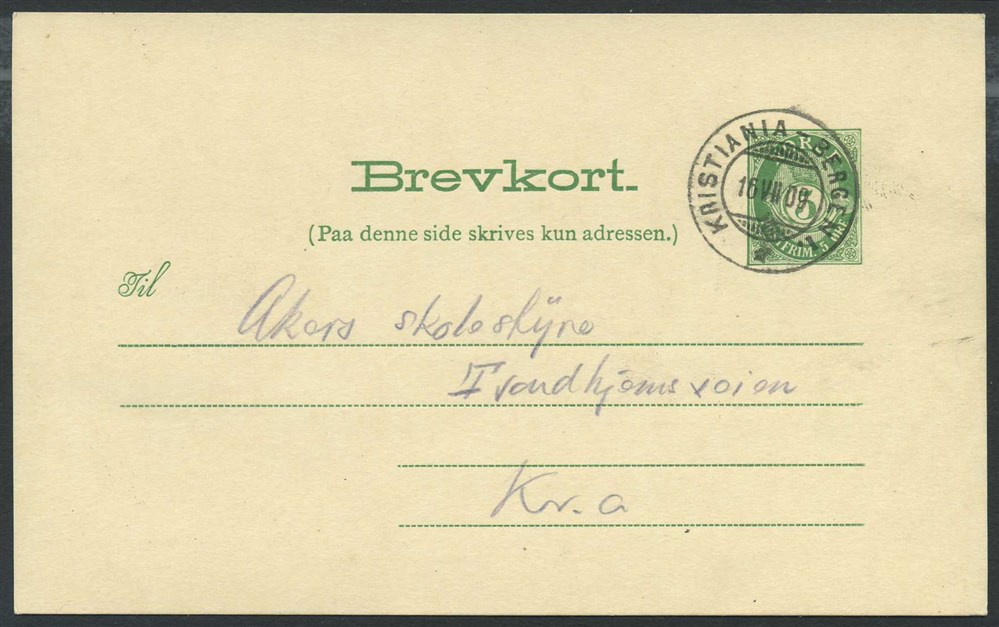 Brevkort.
(Paa denne side skrives kun adressen.)
KRISTIANIA–BERGEN
16 VII 09
5
FRIM. 5 ØRE
Til
Akers skolestÿre
Trondhjemsveien
Kr.a